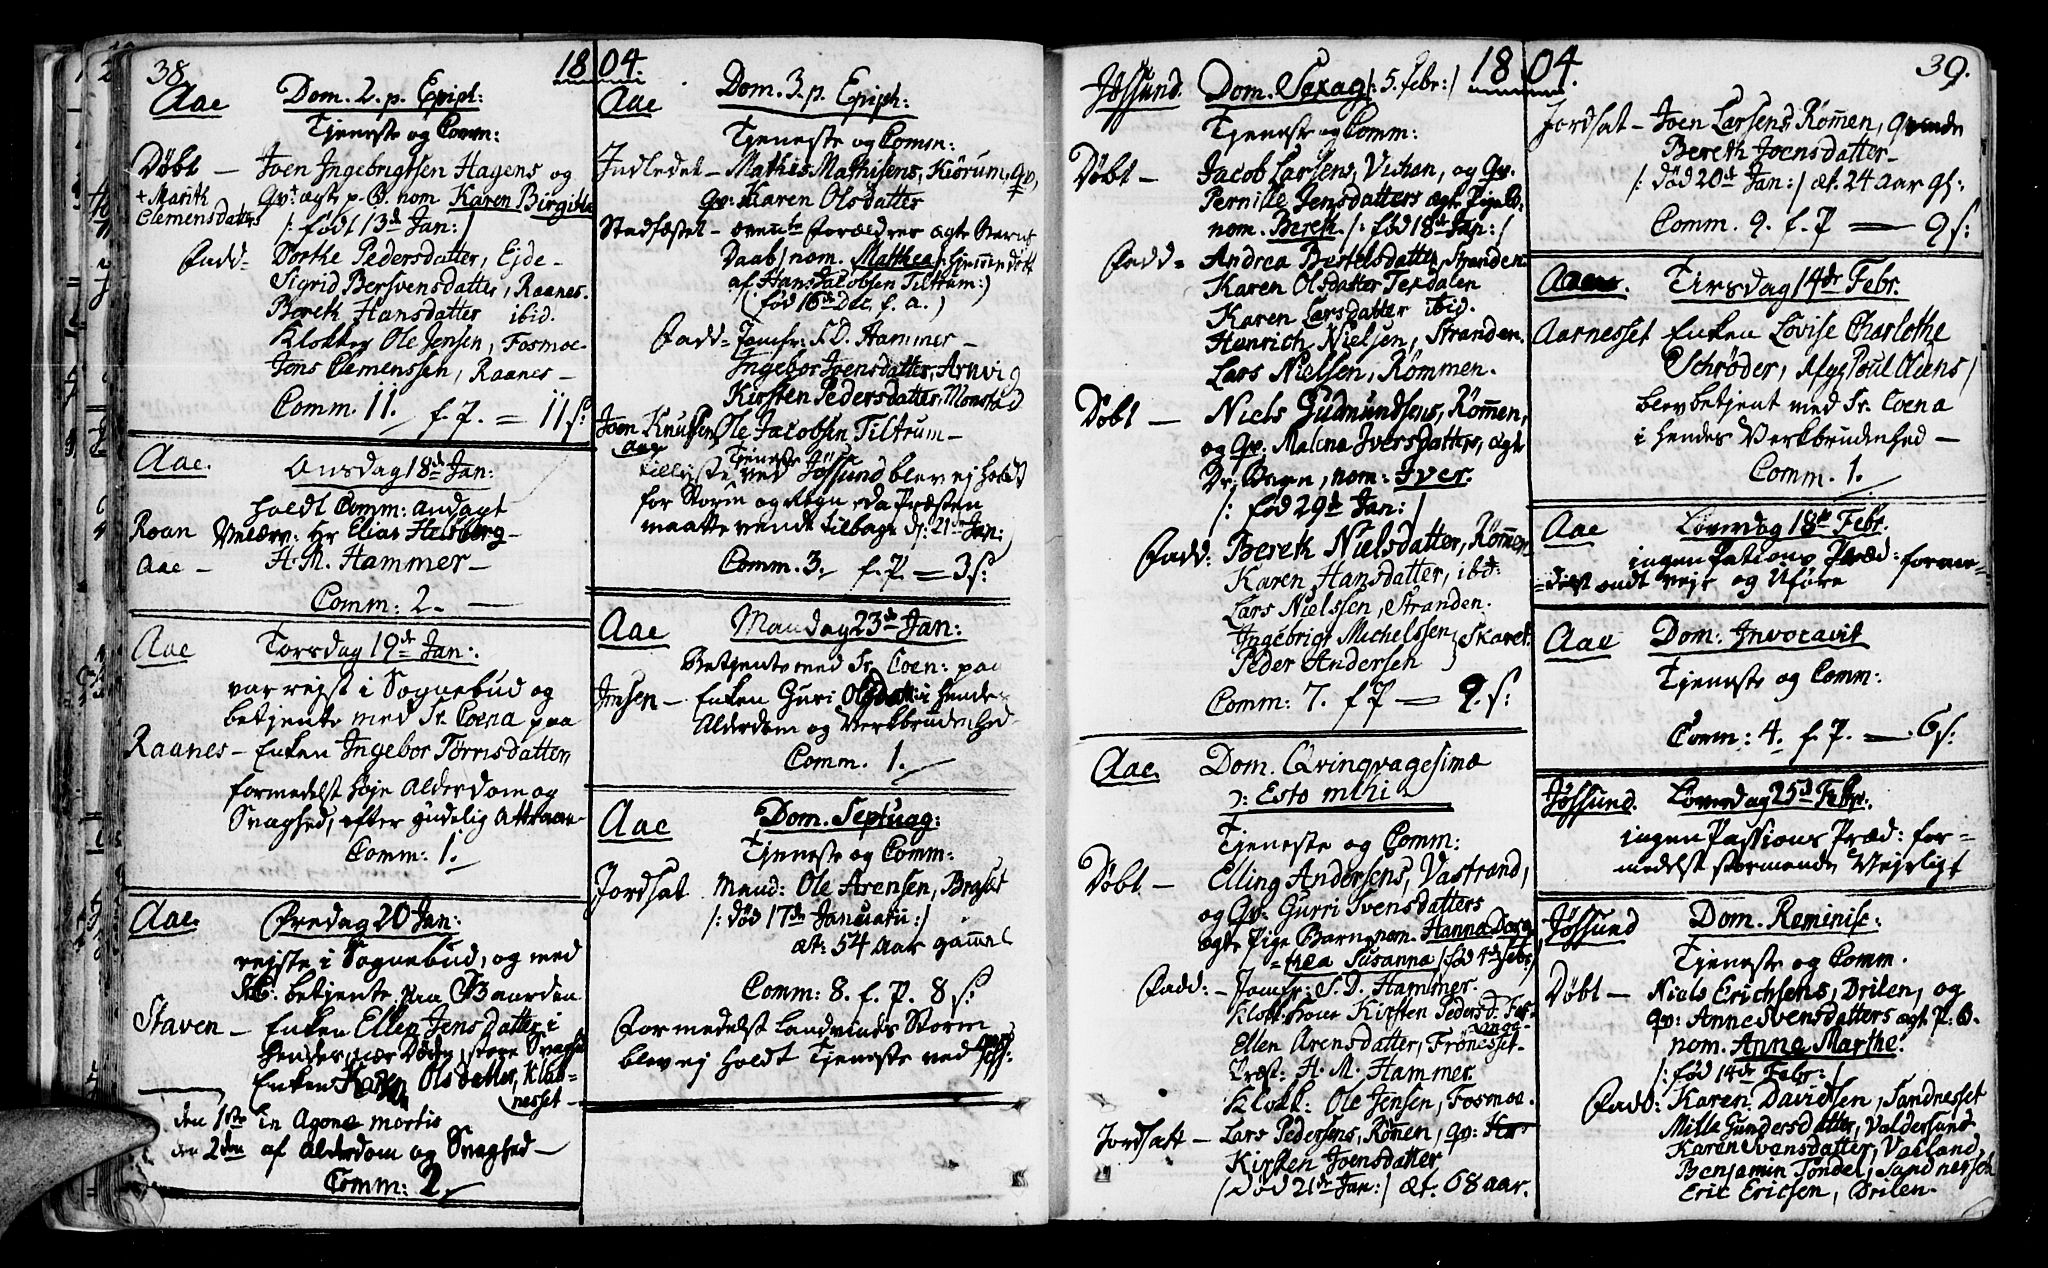 38.
1804.
Aae Dom. 2. p. Epiph:
Tjeneste og Comm:
Døbt — Joen Ingebrigtsen Hagens og
+ Marith Clemensdatters
Qv: ægte p. B. nom Karen Birgitha
/: født 13de Jan: /
Fadd= Dorthe Pedersdatter, Eide —
Sigrid Bersvensdatter, Raanes.
Bereth Hansdatter ibid.
Klokker Ole Jensen, Fosmoe —
Jens Clemenssen, Raanes —
Comm. 11. f. P. = 11 s:
Aae. Onsdag 18de Jan:
holdt Comm: andagt
Roan Velærv: Hr Elias Heltberg —
Aae — H. M. Hammer —
Comm: 2. —
Aae Torsdag 19de Jan:
var rejst i Sognebud og
betjente med Sr. Coena paa
Raanes — Enken Ingebor Tørrisdatter,
formedelst høje Alderdom og
Svaghed, efter gudelig Attraae —
Comm: 1.
Aae. Fredag 20 Jan:
rejste i Sognebud, og med
betjente paa Gaarden
Staven — Enken Ellen Jensdatter i
hendes nær Døden store Svaghed
Enken Karen Olsdatter, Klev=
nesset —
den 1ste in Agone mortis
den 2den af Alderdom og Svaghed —
Comm: 2.
Aae Dom. 3. p. Epiph:
Tjeneste og Comm:
Indledet — Mathis Mathisens, Kiørum, Qv,
Qv: Karen Olsdatter
Stadfæstet — ovente Forældres ægte Barns
Daab / nom. Matthea / hjemmedøbt
af Hans Jacobsen Tiltrum:)
(født 16de Dec. f. a.)
Fadd= Jomfr: S. D. Hammer —
Ingebor Joensdatter, Arnvig
Kirsten Pedersdatter, Monstad
Joen Knutsen Aae
Ole Jacobsen Tiltrum —
Tjeneste
tillyste ved Jøssund blev ej holdt
for Storm og Regn, da Præsten
maatte vende tilbage d: 21de Jan:)
Comm. 3. f. P. = 3 s:
Aae Mandag 23de Jan:
Betjente med Sr. Coen: paa
Jensen — Enken Guri Olsdatt: i hendes
Alderdom og Verkbrudenhed
Comm. 1.
Aae Dom. Septuag:
Tjeneste og Comm:
Jordsat Mand: Ole Arensen, Braset
/: død 17de Januarii :/
æt: 54 aar gammel
Comm: 8. f. P. 8 s:
Formedelst Landvinds Storm
blev ej holdt Tjeneste ved Jøss:
1804.
39.
Jøssund. Dom. Sexag /: 5. Febr: /
Tjeneste og Comm:
Døbt — Jacob Larsens, Vishan, og Qv.
Pernille Jensdatters ægte Pige B:
nom. Bereth. /: født 18de Jan: /
Fadd= Andrea Bertelsdatter, Stranden.
Karen Olsdatter Terdalen
Karen Larsdatter ibid.
Henrich Nielsen, Stranden.
Lars Nielssen, Rømmen.
Døbt — Niels Gudmundsens, Rømmen,
og Qv: Malena Iversdatters, ægte
Dr. Barn, nom: Iver.
/: født 29de Jan: /
Fadd: Bereth Nielsdatter, Rømmen
Karen Hansdatter, ibd:
Lars Nielssen, Stranden.
Ingebrigt Michelssen } Skaret.
Peder Andersen
Comm: 7. f P = 9. s:
Aae. Dom. Qvinqvagesimæ
ɔ: Esto mihi
Tjeneste og Comm:
Døbt — Elling Andersens, Vastrand,
og Qv: Gurri Svensdatters
ægte Pige Barn, nom. Hanna Doro
=thea Susanna / født 4de Febr /
Fadd: — Jomfr: S. D. Hammer.
Klokk: Kone Kirsten Peders D. Fos=
moe —
Ellen Arensdatter, Frönesset —
Præst: H. M. Hammer.
Klokk: Ole Jensen, Fosmoe.
Jordsatt — Lars Pedersens, Rømen, qv:
Kirsten Joensdatter
/ død 21de Jan: / æt. 68 aar.
Jordsat — Joen Larsens Rømen, Qvinde
Bereth Joensdatter —
/: død 20de Jan: / æt. 24 aar gl:
Comm. 9. f. P = 9 s:
Aae. Tirsdag 14de Febr.
Aarnesset Enken Lovise Charlothe
Schrøder,
blev betjent med Sr. Coena
i hendes Verkbrudenhed —
Comm. 1.
Aae Løverdag 18de Febr.
ingen Passions Præd: forme=
=delst ondt vejr og Uføre
Aae Dom: Invocavit
Tjeneste og Comm:
Comm: 4. f. P. — 6 s:
Jøssund. Løverdag 25de Febr.
ingen Passions Præd: for=
medelst stormende Vejrligt
Jøssund Dom. Reminisc:
Tjeneste og Comm.
Døbt — Niels Erichsens, Drilen, og
qv: Anne Svensdatters ægt P: B.
nom. Anne Marthe.
/: født 14de Febr: /
Fadd: Karen Davidsen, Sandnesset
Milla Gundersdatter, Valdersund
Karen Svensdatter, Valland,
Benjamin Tøndel, Sandnesset
Eric Ericsen, Drilen.